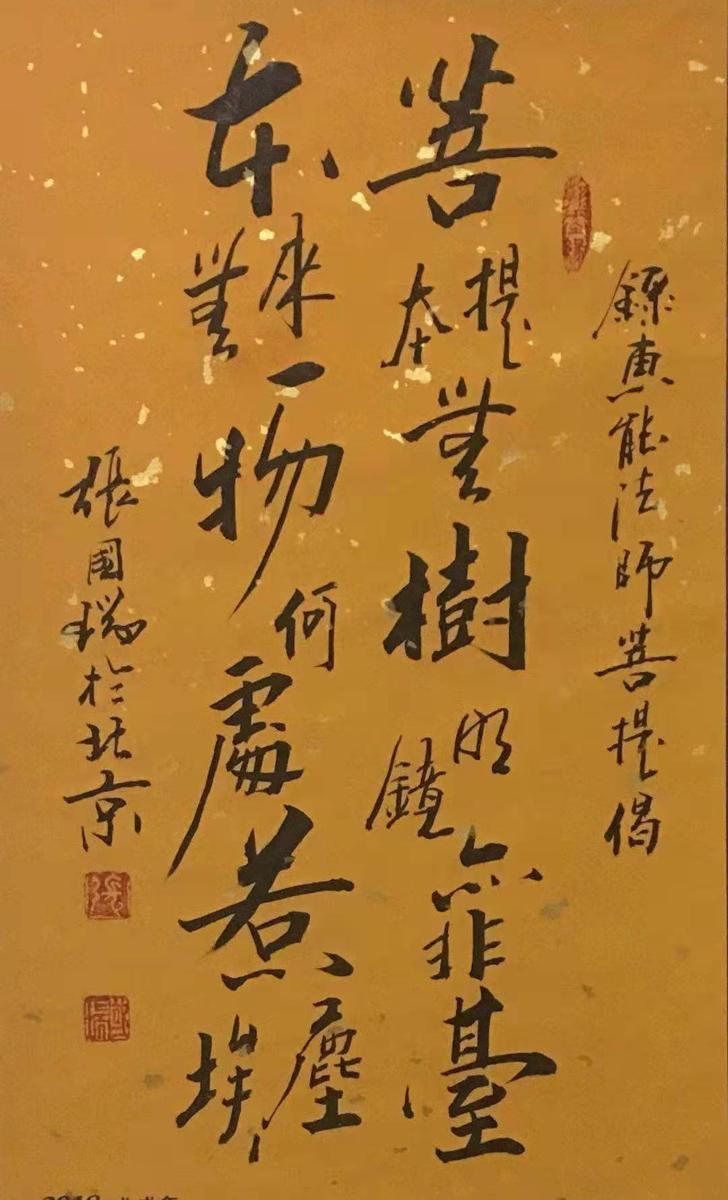 錄惠能法師菩提偈
菩提本無樹明鏡亦非臺
本來無一物何處惹塵埃
張國瑞於北京